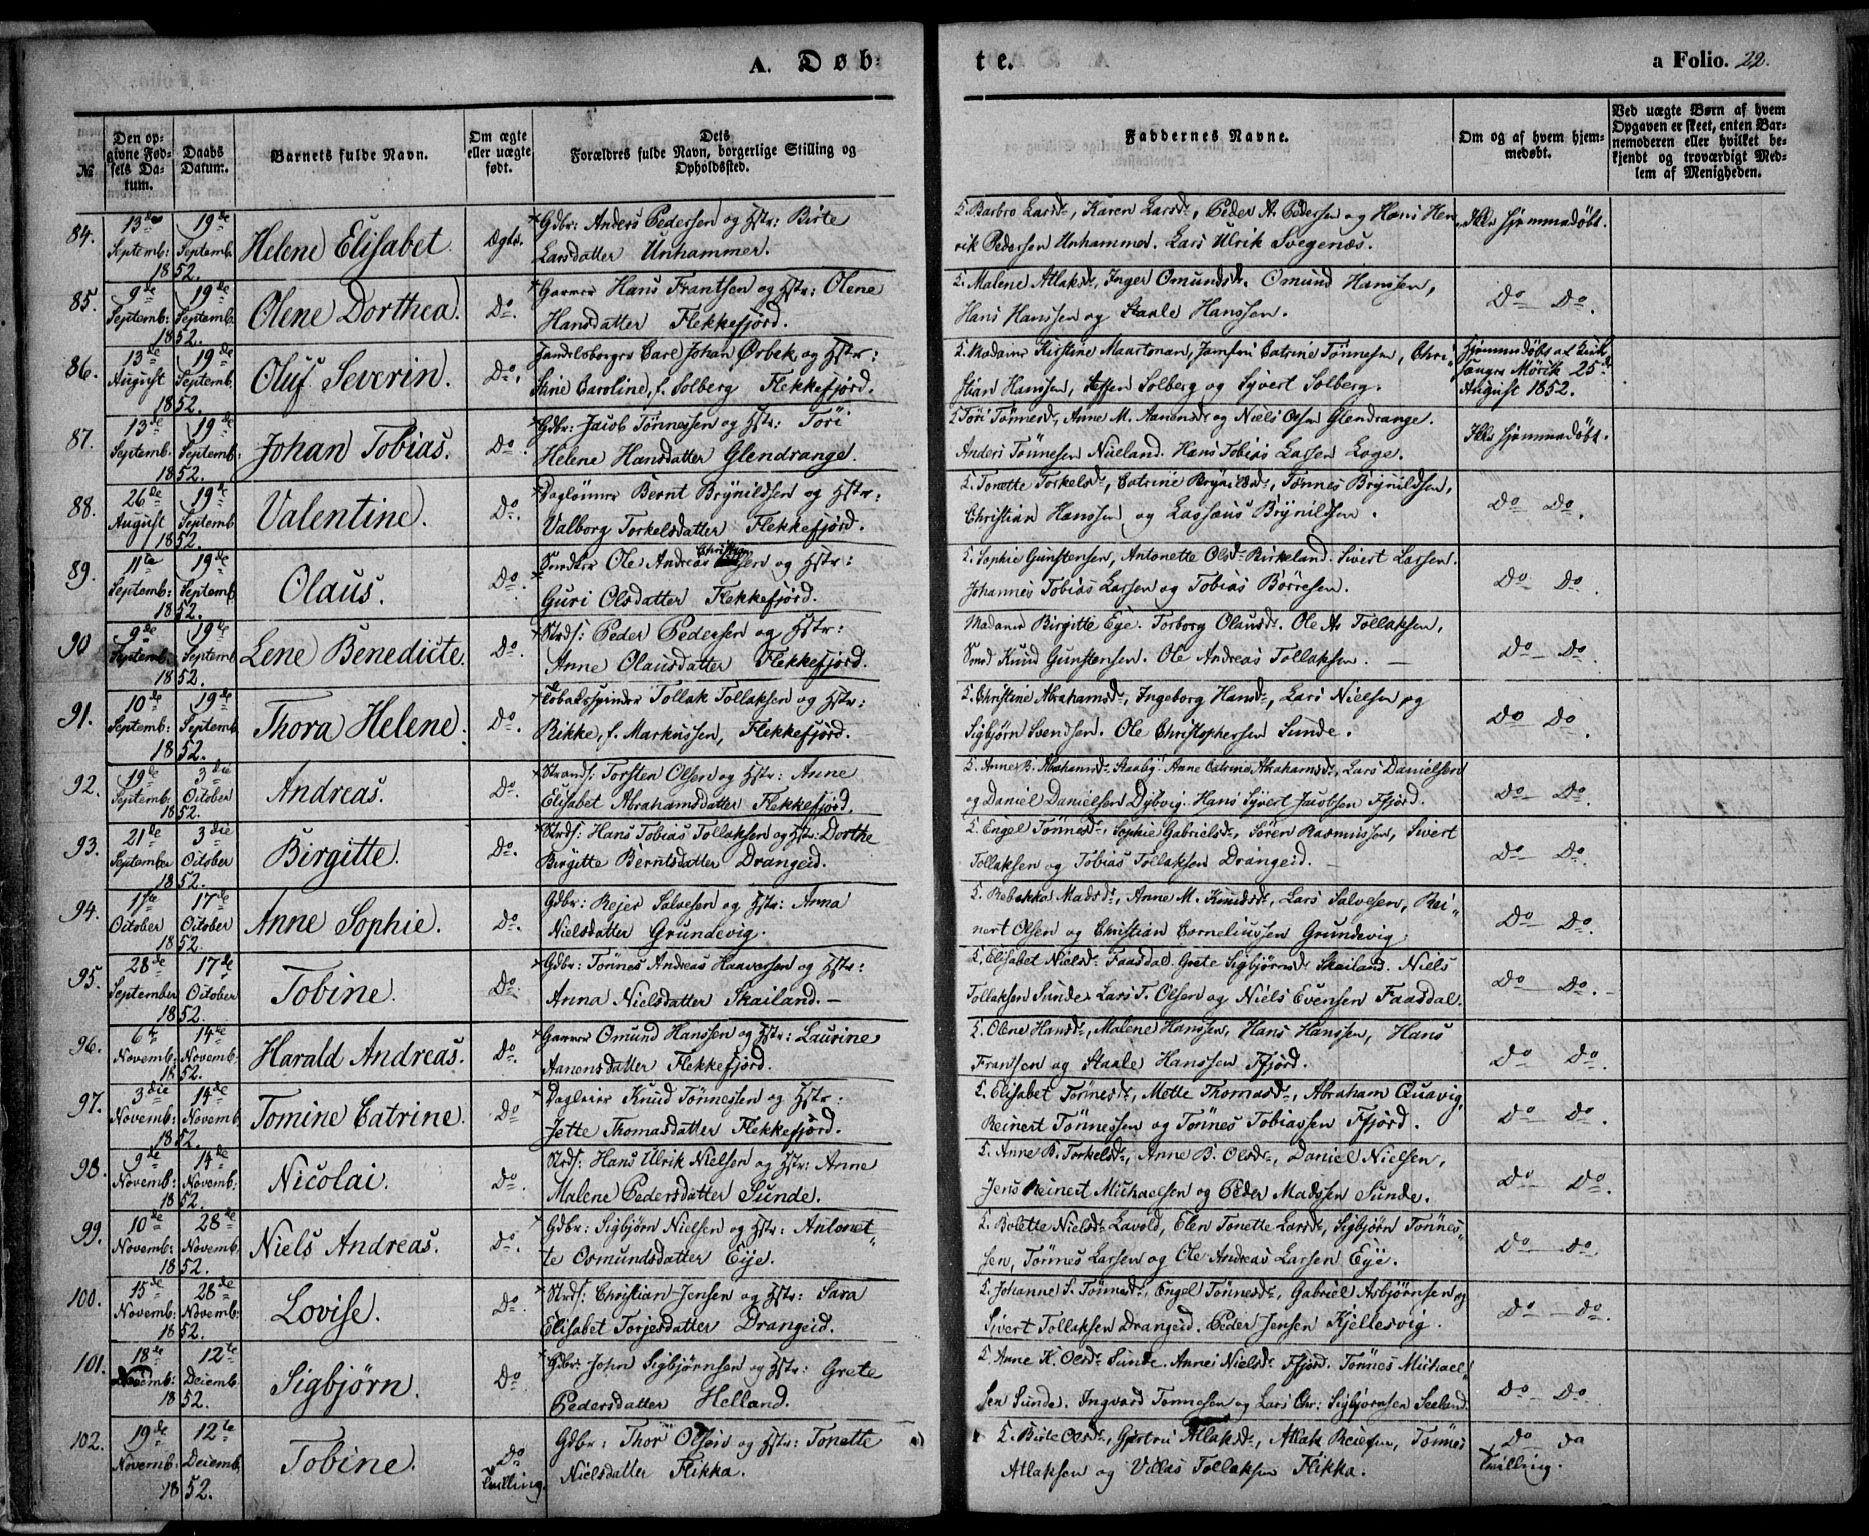 A. Døb=
te.
a Folio. 22.
№
Den opgivne Fødsels Datum.
Daabs Datum.
Barnets fulde Navn.
Om ægte eller uægte født.
Dets Forældres fulde Navn, borgerlige Stilling og Opholdssted.
Faddernes Navne.
Om og af hvem hjemmedøbt.
Ved uægte Børn af hvem Opgaven er skeet, enten Barnemoderen eller hvilket bekjendt og troværdigt Medlem af Menigheden.
84. 13de Septemb: 1852. 19de Septemb. Helene Elisabet. Ægte. Gdbr: Anders Pedersen og Hstr: Birte
Larsdatter Unhammer.
F. Barbro Larsd., Karen Larsd., Peder A. Pedersen og Hans Hen
rik Pedersen Unhammer. Lars Ulrik Svegenæs.
Ikke hjemmedøbt.
85. 9de Septemb: 1852. 19de Septemb. Olene Dorthea. Do. Garver Hans Frantsen og Hstr: Olene
Hansdatter Flekkefjord.
F. Malene Atlaksd., Inger Omundsd. Omund Hanssen,
Hans Hanssen og Staale Hanssen.
Do Do.
86. 13de August 1852. 19de Septemb. Oluf Severin. Do. Handelsborger Carl Johan Ørbek og Hstr:
Sine Caroline, f. Solberg Flekkefjord.
F. Madame Kirstine Maartman, Jomfru Catrine Tønnesen, Chri
stian Hanssen, Steffen Solberg og Syvert Solberg.
Hjemmedøbt af Kirk
sanger Mørch 25de
August 1852.
87. 13de Septemb. 1852. 19de Septemb: Johan Tobias. Do. Gdbr: Jacob Tønnessen og Hstr: Tøri
Helene Hansdatter Glendrange.
F. Tøri Tønnesd., Anne M. Aanonsd. og Niels Olsen Glendrange.
Anders Tønnesen Nueland. Hans Tobias Larsen Loge.
Ikke hjemmedøbt.
88. 26de August 1852. 19de Septemb. Valentine. Do. Daglønner Bernt Brynildsen og Hstr:
Valborg Torkelsdatter Flekkefjord.
F. Tonette Torkelsd., Catrine Brynildsd., Tønnes Brynildsen,
Christian Hanssen og Lassæus Brynildsen.
Do Do.
89. 11te Septemb: 1852. 19de Septemb. Olaus. Do. Snedker Ole Andreas Christian Olsen og Hstr:
Guri Olsdatter Flekkefjord.
F. Sophie Gunstensen, Antonette Olsd. Birkeland. Sivert Larsen.
Johannes Tobias Larsen og Tobias Børresen.
Do Do.
90 9de Septemb. 1852. 19de Septemb Lene Benedicte. Do. Strds: Peder Pedersen og Hstr:
Anne Olausdatter Flekkefjord.
Madame Birgitte Eye. Torborg Olausd. Ole A. Tollaksen,
Smed Knud Gunstensen. Ole Andreas Tollaksen.
Do Do.
91. 10de Septemb: 1852. 19de Septemb: Thora Helene. Do. Tobaksspinder Tollak Tollaksen og Hstr:
Rikke, f. Markussen, Flekkefjord.
F. Christine Abrahamsd., Ingeborg Hansd., Lars Nielsen og
Sigbjørn Svendsen. Ole Christophersen Sunde.
Do Do.
92. 19de Septemb: 1852. 3die October Andreas. Do. Strands: Torsten Olsen og Hstr: Anne
Elisabet Abrahamsdatter Flekkefjord.
F. Anne B. Abrahamsd. Staaby. Anne Catrine Abrahamsd., Lars Danielsen
og Daniel Danielsen Dybvig. Hans Syvert Jacobsen Ffjord.
Do Do.
93. 21de September 1852. 3die October Birgitte. Do. Strds: Hans Tobias Tollaksen og Hstr: Dorthe
Birgitte Berntsdatter Drangeid.
F. Engel Tønnesd., Sophie Gabrielsd., Søren Rasmussen, Sivert
Tollaksen og Tobias Tollaksen Drangeid.
Do Do.
94. 1ste October 1852. 17de October Anne Sophie. Do. Gdbr: Rejer Salvesen og Hstr: Anna
Nielsdatter Grundevig.
F. Rebekka Madsd., Anne M. Knudsd., Lars Salvesen, Rei
nert Olsen og Christian Corneliussen Grundevig.
Do Do.
95. 28de September 1852. 17de October Tobine. Do. Gdbr: Tønnes Andreas Haaversen og Hstr:
Anna Nielsdatter Skailand.
F. Elisabet Nielsd. Faasdal. Grete Sigbjørnsd. Skailand. Niels
Tollaksen Sunde. Lars T. Olsen og Niels Evensen Faasdal.
Do Do.
96. 6te Novemb: 1852. 14de Novemb. Harald Andreas. Do. Garver Omund Hanssen og Hstr: Laurine
Aanensdatter Flekkefjord.
F. Olene Hansd., Malene Hanssen, Hans Hanssen, Hans
Frantsen og Staale Hanssen Ffjord.
Do Do.
97. 3die Novemb: 1852. 14de Novemb Tomine Catrine. Do. Dagleier Knud Tønnessen og Hstr:
Jette Thomasdatter Flekkefjord.
F. Elisabet Tønnesd., Mette Thomasd., Abraham Quavig,
Reinert Tønnessen og Tønnes Tobiassen Ffjord.
Do Do.
98. 9de Novemb: 1852. 14de Novemb: Nicolai. Do. Strds: Hans Ulrik Nielsen og Hstr: Anne
Malene Pedersdatter Sunde.
F. Anne B. Torkelsd., Anne B. Olsd., Daniel Nielsen,
Jens Reinert Michaelsen og Peder Madssen Sunde.
Do Do.
99. 10de Novemb: 1852. 28de Novemb. Niels Andreas. Do. Gdbr: Sigbjørn Nielsen og Hstr: Antonet
te Osmundsdatter Eye.
F. Bolette Nielsd. Lavold, Elen Tonette Larsd., Sigbjørn Tønnes
sen, Tønnes Larsen og Ole Andreas Larsen Eye.
Do Do.
100. 15de Novemb: 1852. 28de Novemb: Lovise. Do. Strds: Christian Jensen og Hstr: Sara
Elisabet Torjesdatter Drangeid.
F. Johanne S. Tønnesd., Engel Tønnesd., Gabriel Asbjørnsen og
Sivert Tollaksen Drangeid. Peder Jensen Kjellesvig.
Do Do.
101. 18de Novemb: 1852. 12te Decemb. Sigbjørn. Do. Gdbr: John Sigbjørnsen og Hstr: Grete
Pedersdatter Helland.
F. Anne K. Olsd. Sunde. Anne Nielsd. Ffjord. Tønnes Michael
sen Sunde. Ingvard Tønnesen og Lars Chr: Sigbjørnsen Seeland.
Do Do.
102. 19de Novemb: 1852. 12te Decemb. Tobine. Do Tvilling. Gdbr: Thor Olsen og Hstr: Tonette
Nielsdatter Flikka.
F. Birte Olsd., Gjertru Atlaksd., Atlak Reiersen, Tønnes
Atlaksen og Villas Tollaksen Flikka.
Do Do
Tvilling.